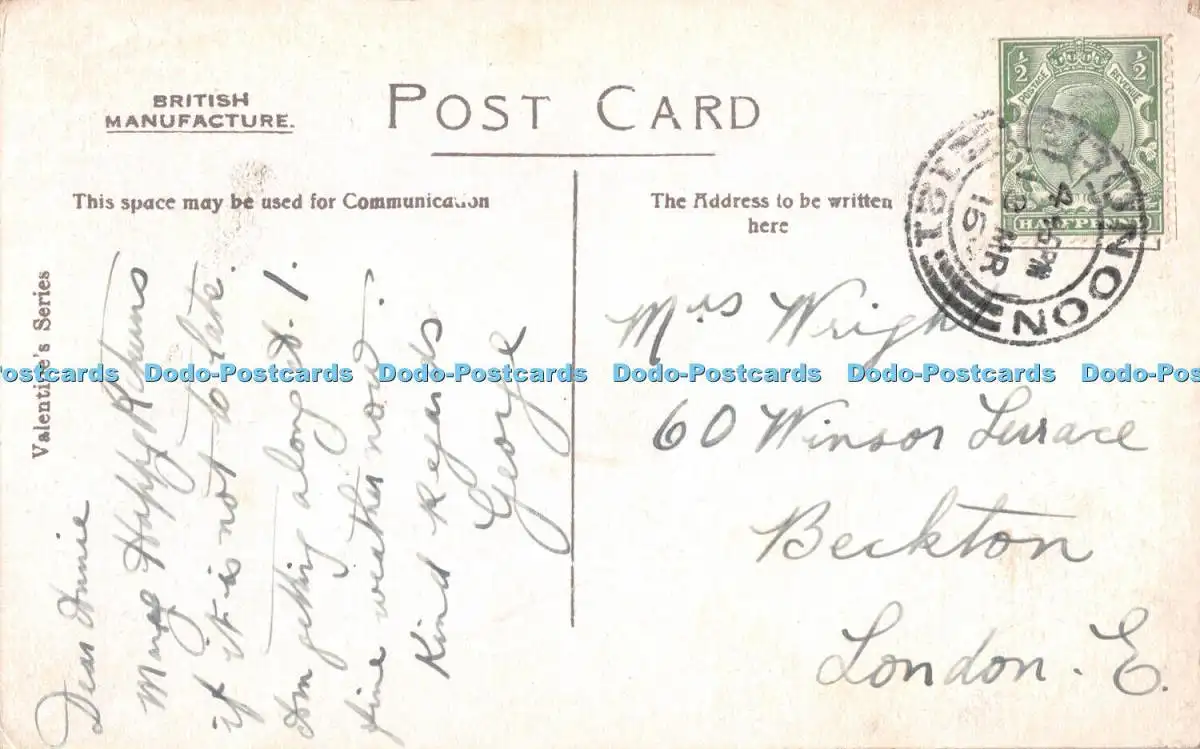 BRITISH
MANUFACTURE.
POST CARD
This space may be used for Communication
The Address to be written
here
Valentine's Series
Dear Annie
Many Happy Returns
if it is not to late.
Am getting along A.1.
fine weather now.
Kind regards
George
Mrs Wright
60 Winsor Terrace
Beckton
London. E.
½ ½
POSTAGE REVENUE
HALFPENNY
DUNOON
4-15PM
MR
15
Dodo-Postcards Dodo-Postcards Dodo-Postcards Dodo-Postcards Dodo-Postcards